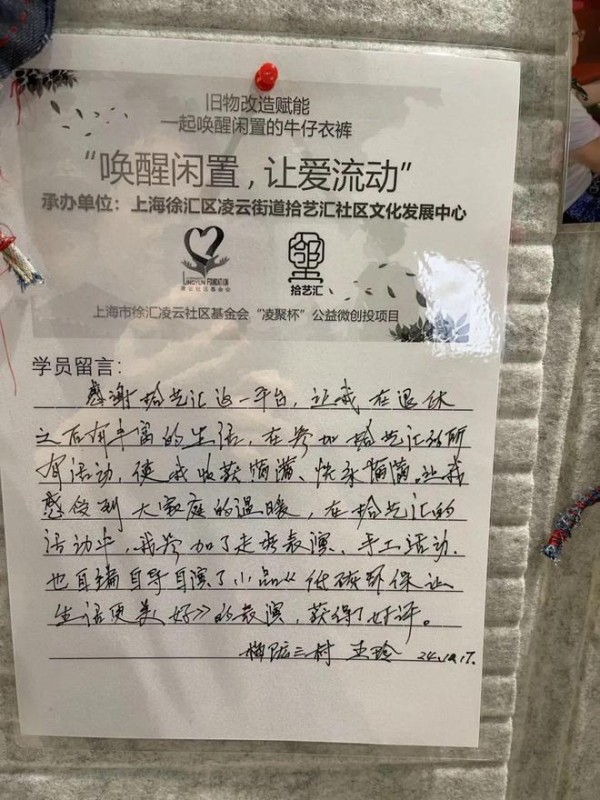 旧物改造赋能
一起唤醒闲置的牛仔衣裤
“唤醒闲置,让爱流动”
承办单位：上海徐汇区凌云街道拾艺汇社区文化发展中心
LINGYUN FOUNDATION
凌云社区基金会
拾艺汇
上海市徐汇凌云社区基金会“凌聚杯”公益微创投项目
学员留言：
感谢拾艺汇这一平台，让我在退休
之后有丰富的生活，在参加拾艺汇的所
有活动，使我收获满满、快乐满满。让我
感受到大家庭的温暖，在拾艺汇的
活动中，我参加了走秀表演、手工活动、
也自编自导自演了小品《低碳环保让
生活更美好》的表演，获得了好评。
梅陇三村 王玲 24.10.17.